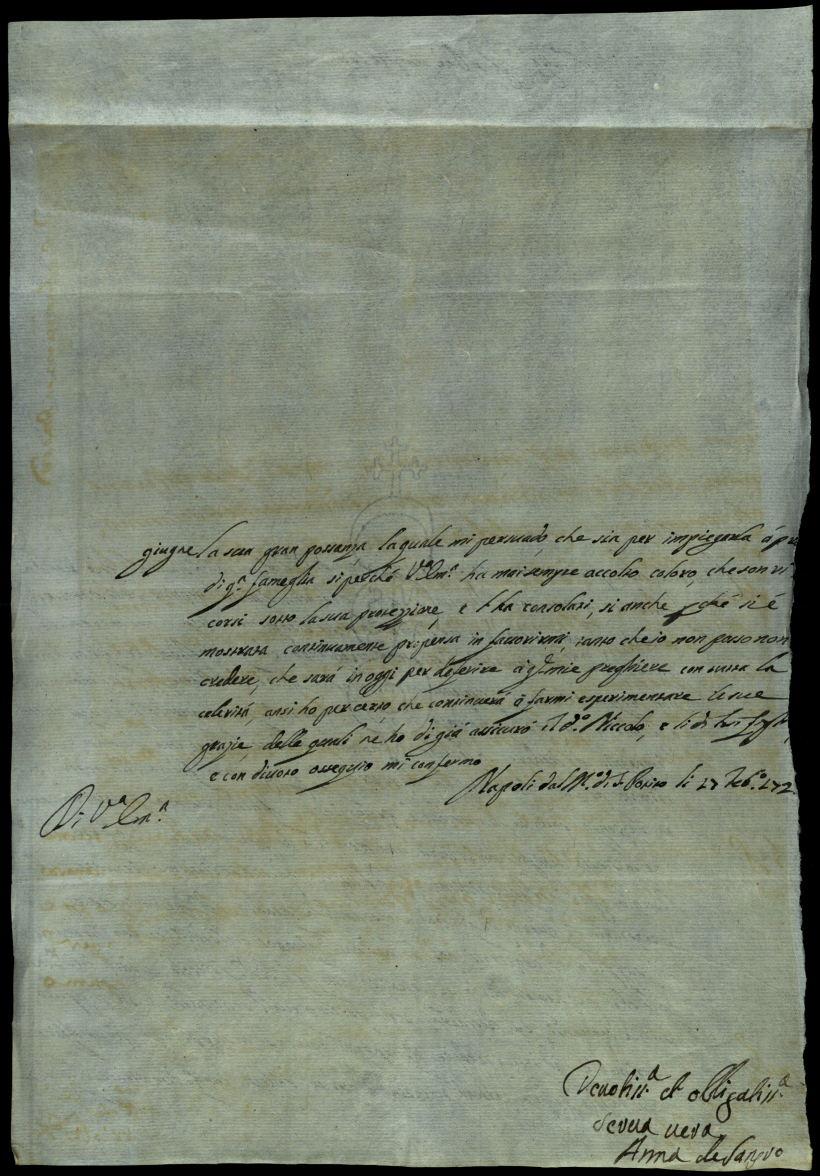 giugne la sua gran possanza, la quale mi persuado, che sia per impiegarla á
di q.a fameglia si perché V.a Em.a ha mai sempre accolto coloro, che son
corsi sotto la sua protezzione, e consolati, si anche ché si é
mostrata continuamente propensa in favorirmi, tanto che io non posso non
credere, che sará in oggi per deferire á mie preghiere con tutta la
celeritá, anzi ho per certo che continuerá á farmi esperimentare le sue
grazie, delle quali ne ho di giá assicurá il d.o Niccolo, e li di lui
e con divoto ossequio mi confermo
Napoli dal M.o di S. Potito li 17 Feb.o 172
Di V.a Em.a
Devotiss.a et obligatiss.a
serva vera
Anna de Sangro